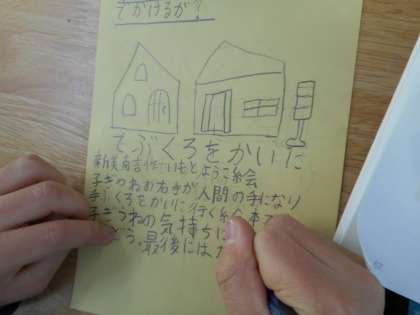 でかけるか？
てぶくろをかいに
新美南吉作いもとようこ絵
子ぎつねおねきが人間の手になり
手ぶくろをかいに行く絵本で
子ぎつねの気持ちに
う。最後には